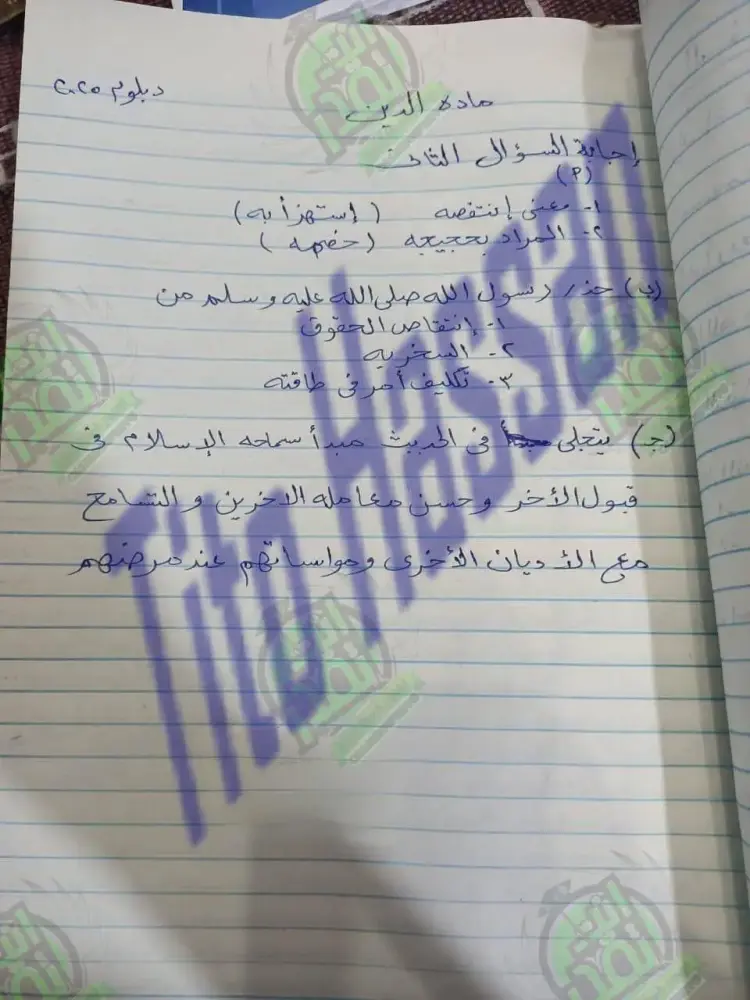 دبلوم ٢٠٢٥
ماده الدين
إجابة السؤال الثانى
(٩)
١- معنى إنتقصه ( إستهزأ به )
٢- المراد بحجيجه ( خصمه )
(ب) حذر رسول الله صلى الله عليه وسلم من
١- إنتقاص الحقوق
٢- السخريه
٣- تكليف أمر فى طاقته
(جـ) يتجلى فى الحديث مبدأ سماحه الإسلام فى
قبول الأخر وحسن معامله الاخرين والتسامح
مع الأديان الأخرى ومواساتهم عند مرضهم
Tito Hassan